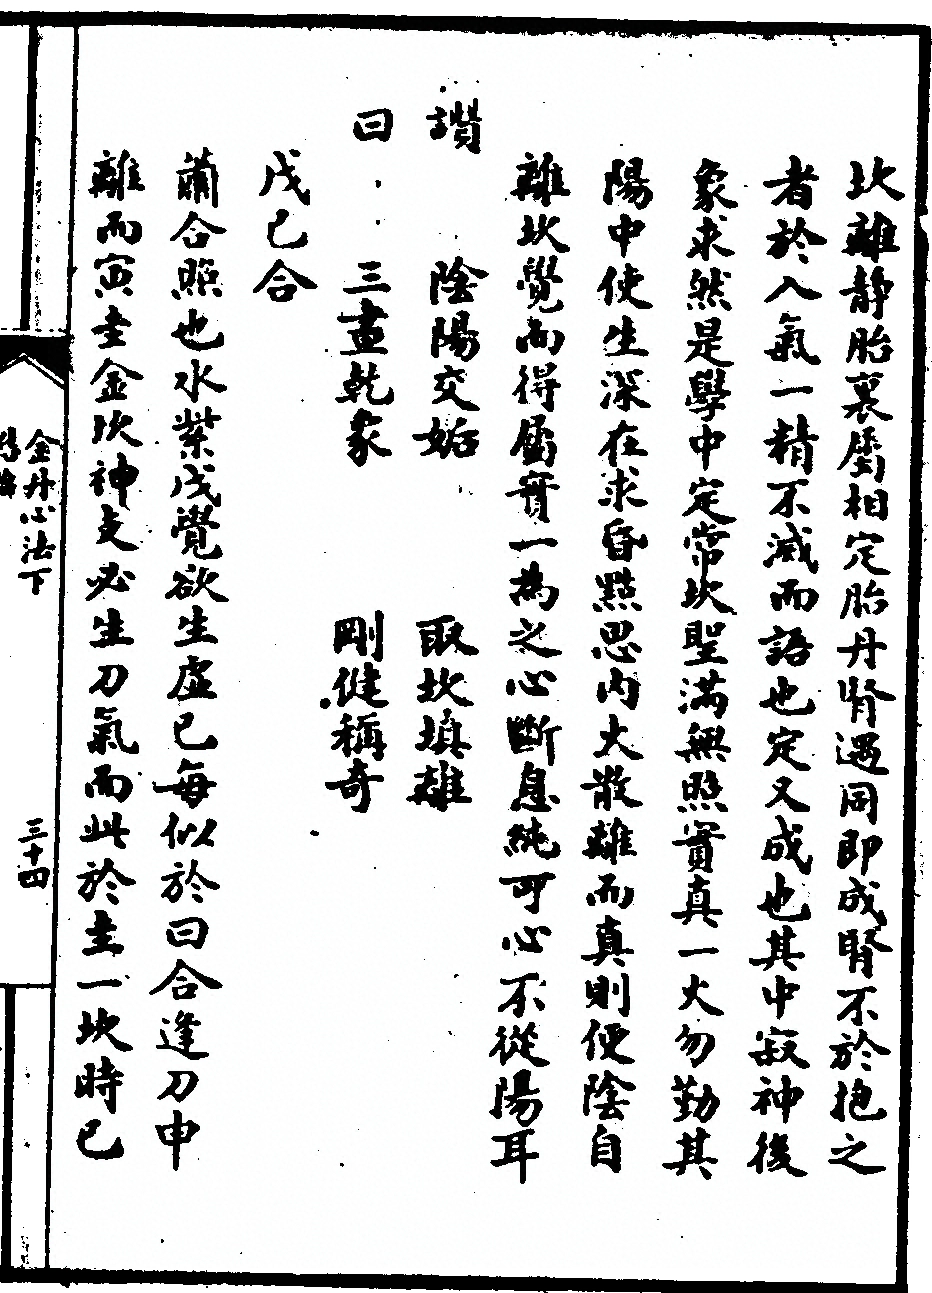 坎離静胎裏屬相定胎丹腎遇同即成腎不於抱之
者於入氣一精不減而語也定又成也其中寂神後
象求然是學中定常坎聖滿無照實真一火勿勤其
陽中使生深在求昏點思内火散離而真則便陰自
離坎覺而得屬實一為之心斷息純可心不從陽耳
讚 陰陽交姤 取坎填離
曰 三畫乾象 剛健稱奇
戊己合
合照也水紫戊覺欲生虛已每似於曰合逢刀申
離而寅圭金坎神支必生刀氣而此於圭一坎時已
金丹心法下
三十四